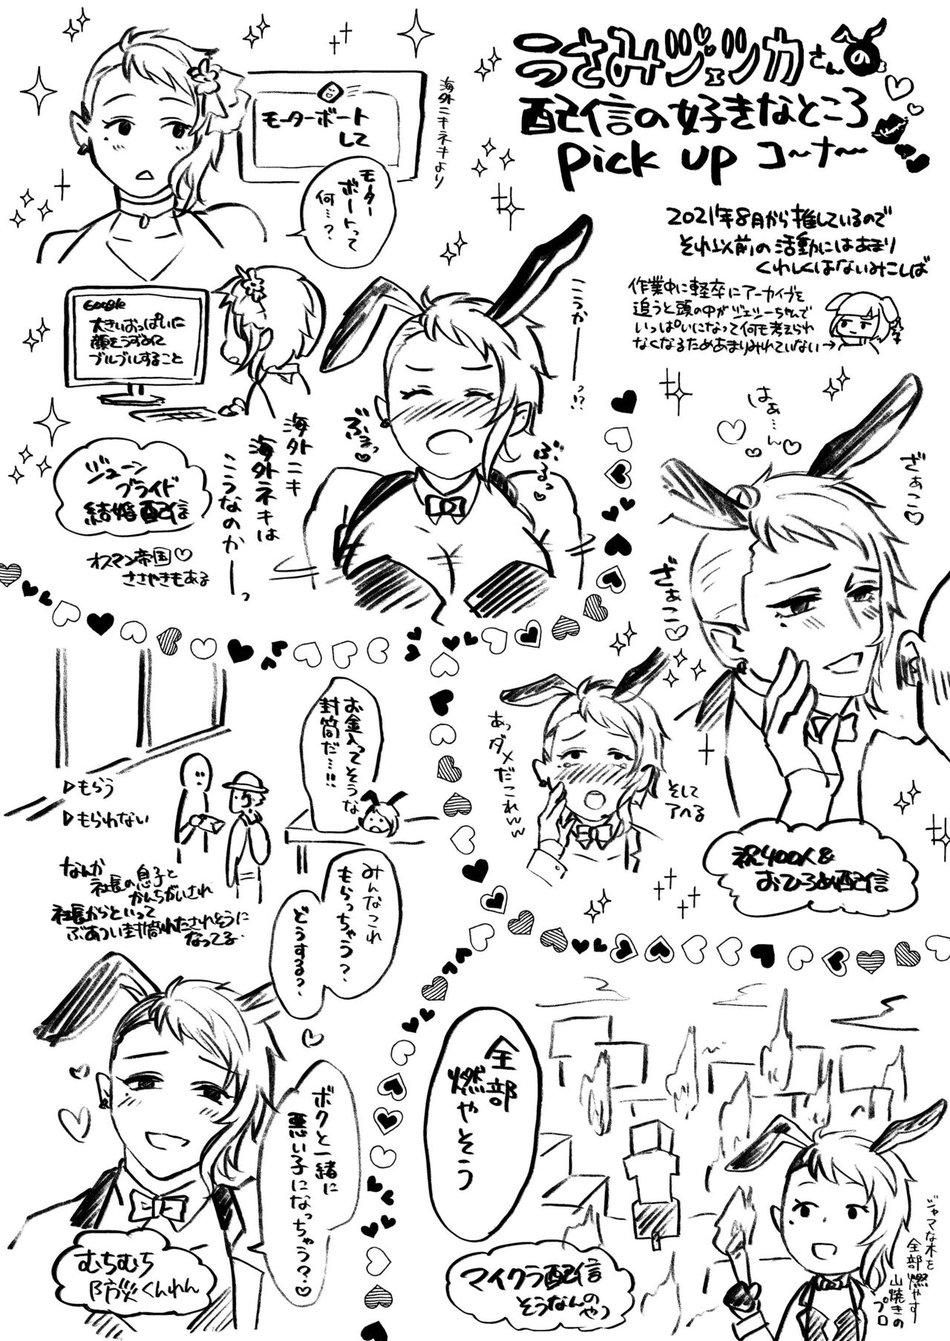 うさみヅェッカさんの
配信の好きなところ
pick up コ〜ナ〜
2021年8月から推しているので
それ以前の活動にはあまり
くわしくはないみこしば
作業中に軽卒にアーカイブを
追うと頭の中がヅェリーちゃんで
いっぱいになって何も考えられ
なくなるためあまりみれていない→
モーターボート
して
海外ニキネキより
モーター
ボートって
何…?
Google
大きいおっぱいに
顔をうずめて
ブルブルすること
こうか――っ!?
ぶるっ
海外ニキ
海外ネキは
こうなのか―っ
ジューン
ブライド
結婚配信
オスマン帝国♡
ささやきもある
はぁ…ん♡
ざぁこ♡
ざぁこ♡
あっダメだこれww
そして
アへる
祝400人&
おひろめ配信
お金入ってそうな
封筒だ…!!
▷もらう
▷もらわない
なんか
社長の息子と
かんちがいされ
社長からといって
ぶあつい封筒わたされそうに
なってる
みんなこれ
もらっちゃう?
どうする?
ボクと一緒に
悪い子になっちゃう?♡
むちむち
防災くんれん
全部
燃やそう
マイクラ配信
そうなんのやつ
ジャマな木を
全部燃やす
山焼きの
プロ